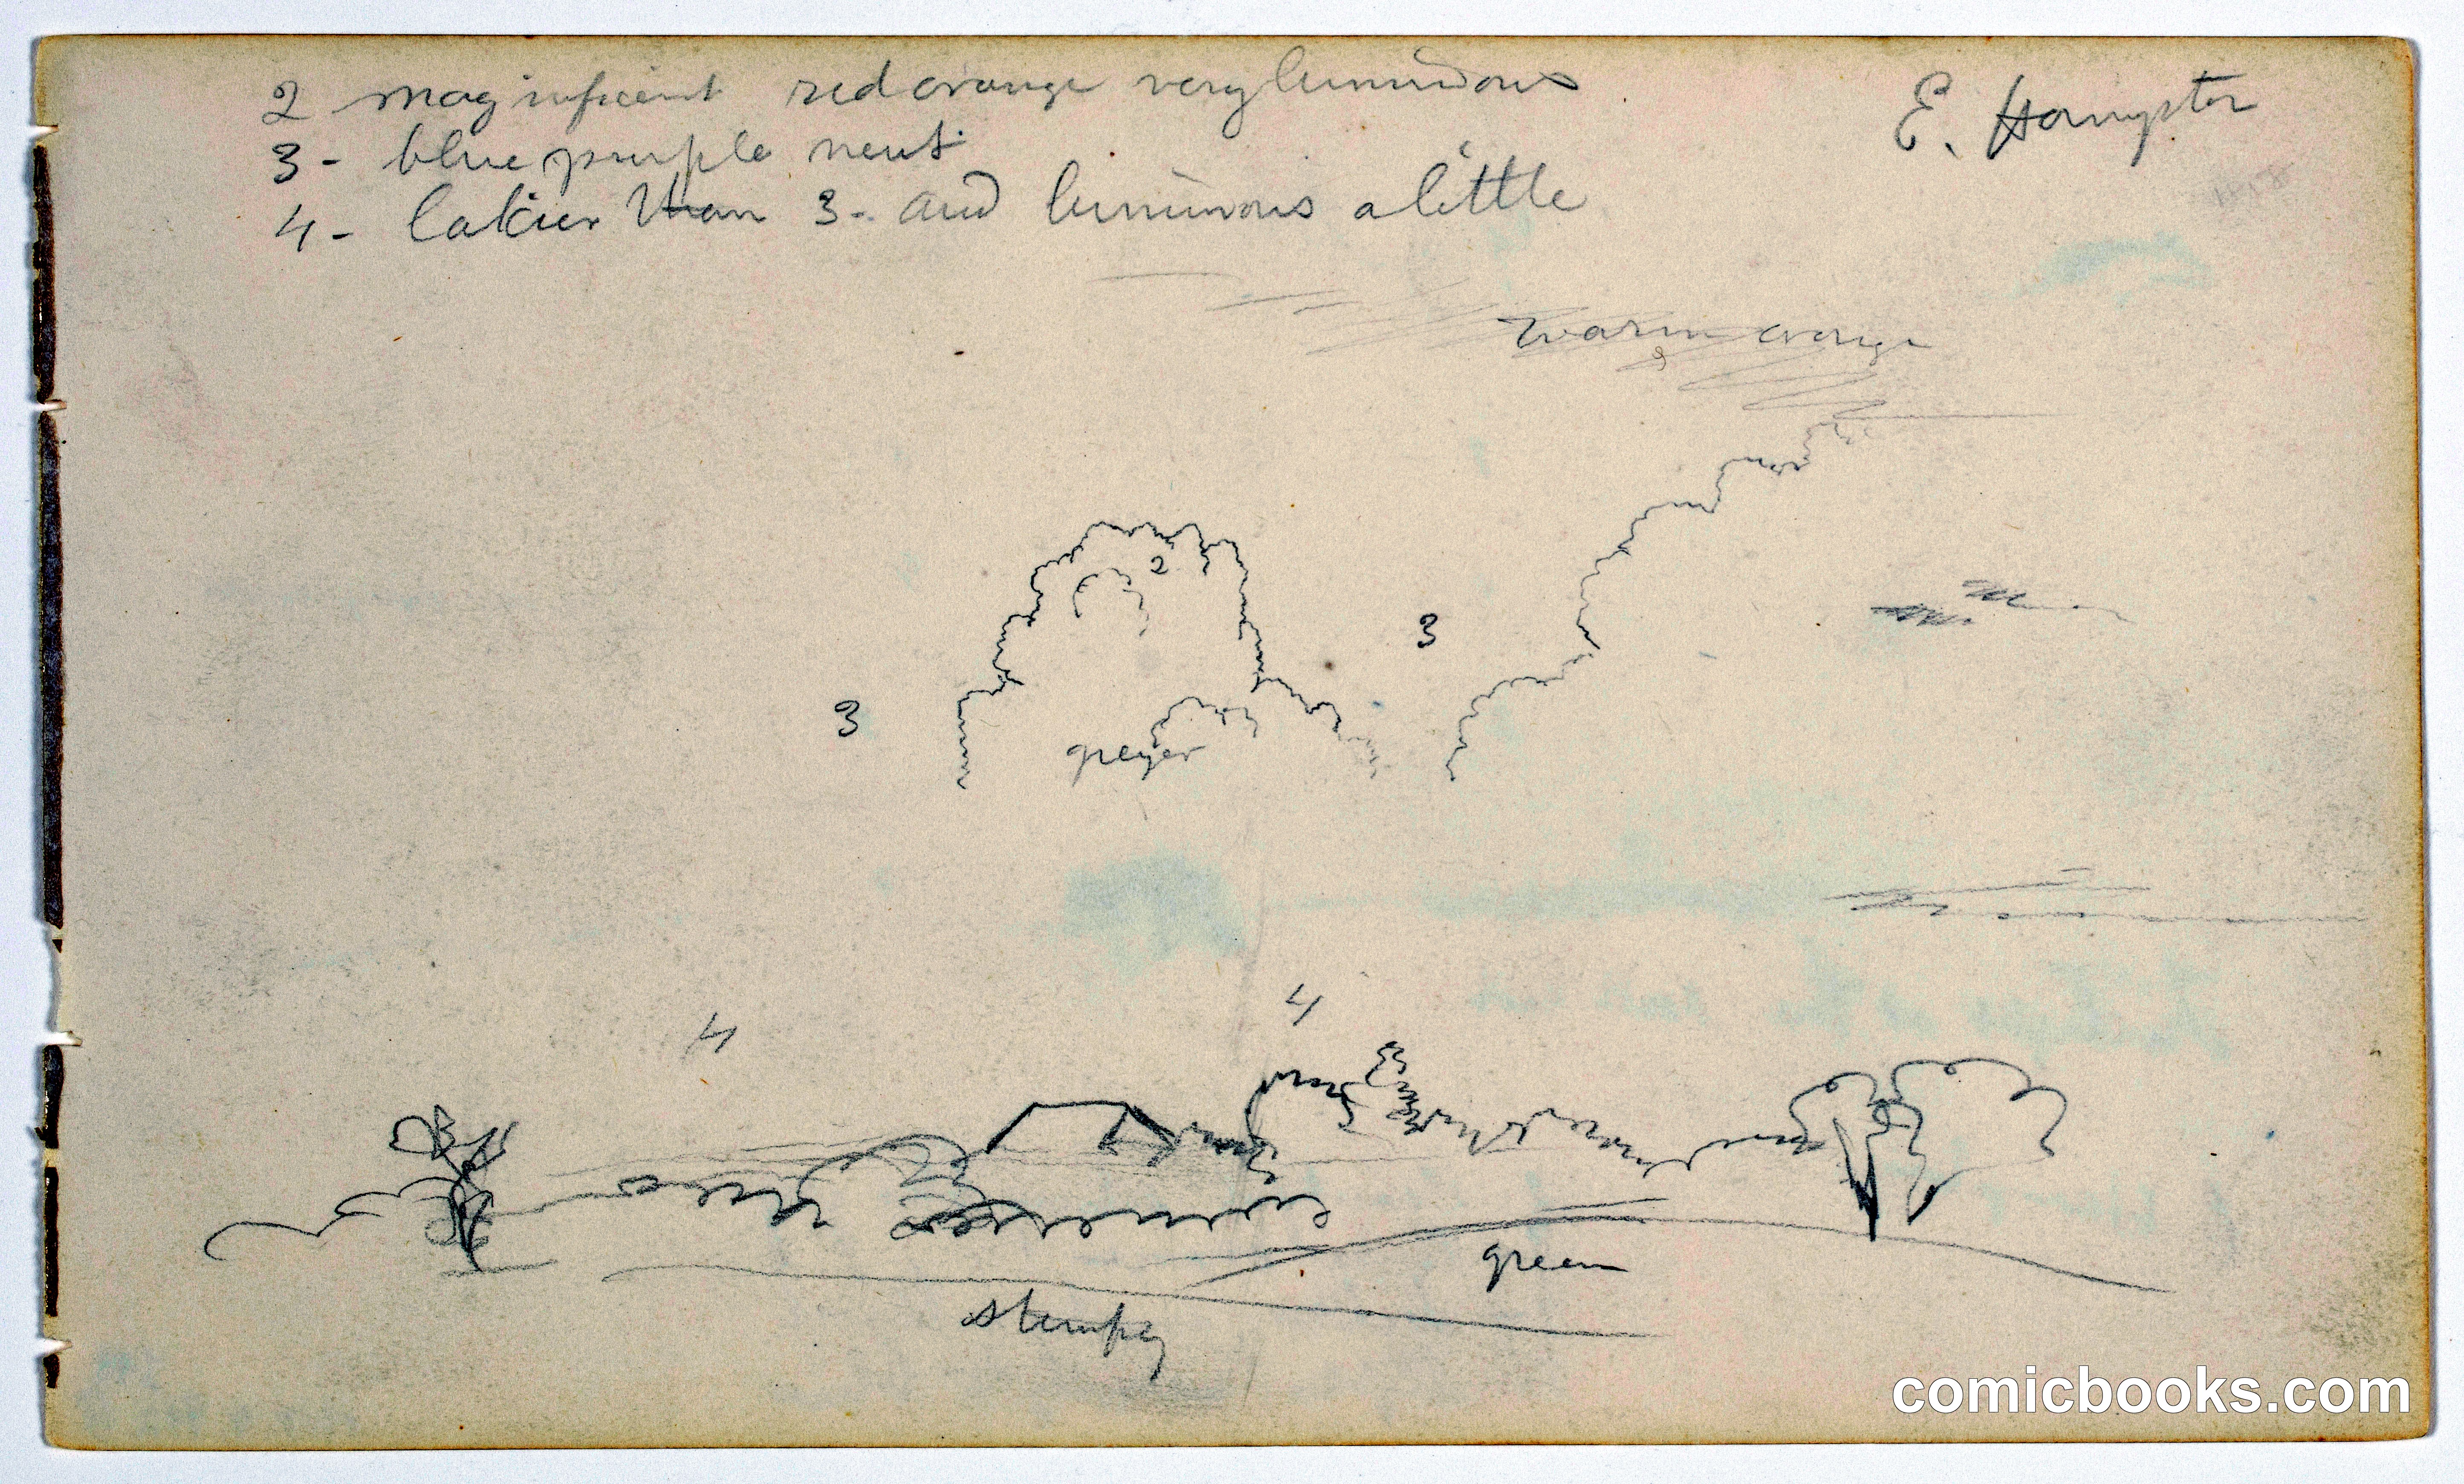 2 magnificent red orange very luminous
3 - blue purple neut.
4 - lakier than 3 - and luminous a little
E. Hampton
warm orange
2
3
3
greyer
4
4
green
comicbooks.com